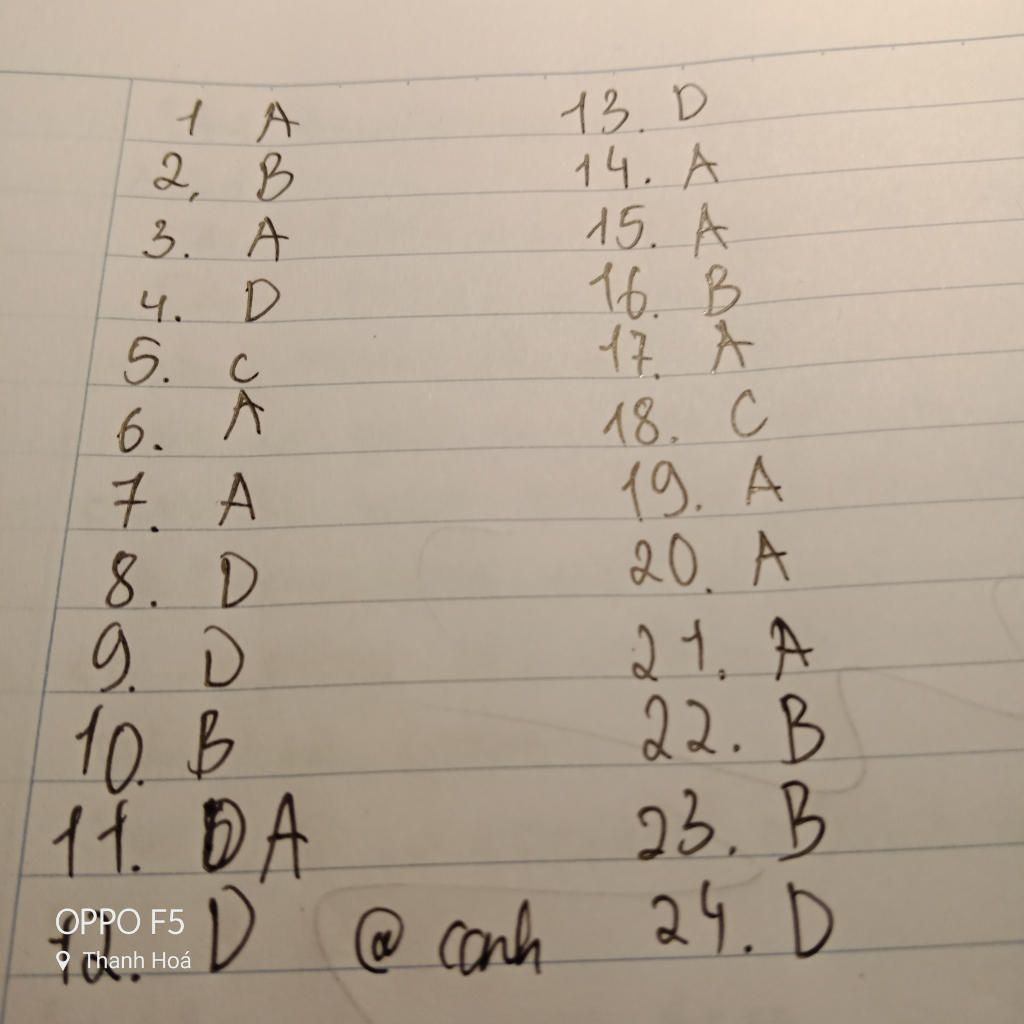 1 A
2, B
3. A
4. D
5. C
6. A
7. A
8. D
9. D
10. B
11. A
12. D @ canh
13. D
14. A
15. A
16. B
17. A
18. C
19. A
20. A
21. A
22. B
23. B
24. D
OPPO F5
Thanh Hoá